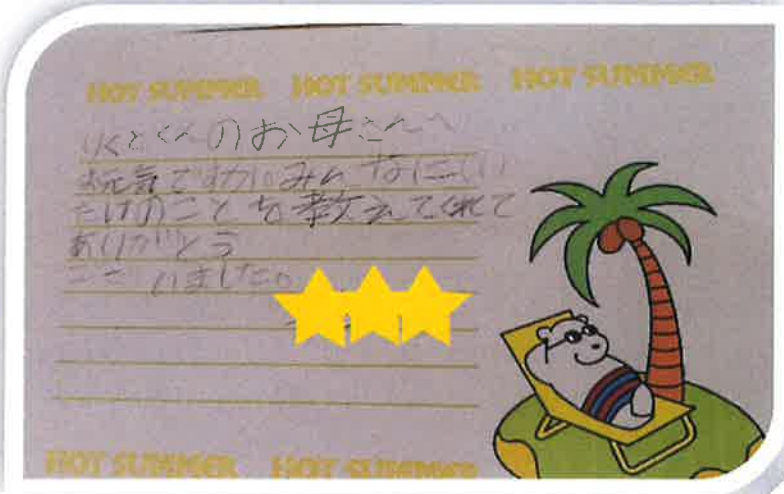 HOT SUMMER HOT SUMMER HOT SUMMER
りくとくんのお母さんへ
お元気ですか。みんなにしい
たけのことを教えてくれて
ありがとう
ございました。
HOT SUMMER HOT SUMMER